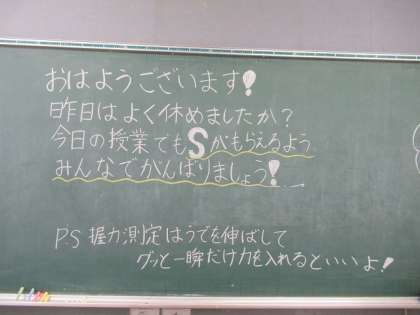 おはようございます!
昨日はよく休めましたか?
今日の授業でもSがもらえるよう
みんなでがんばりましょう!
P.S 握力測定はうでを伸ばして
グッと一瞬だけ力を入れるといいよ!